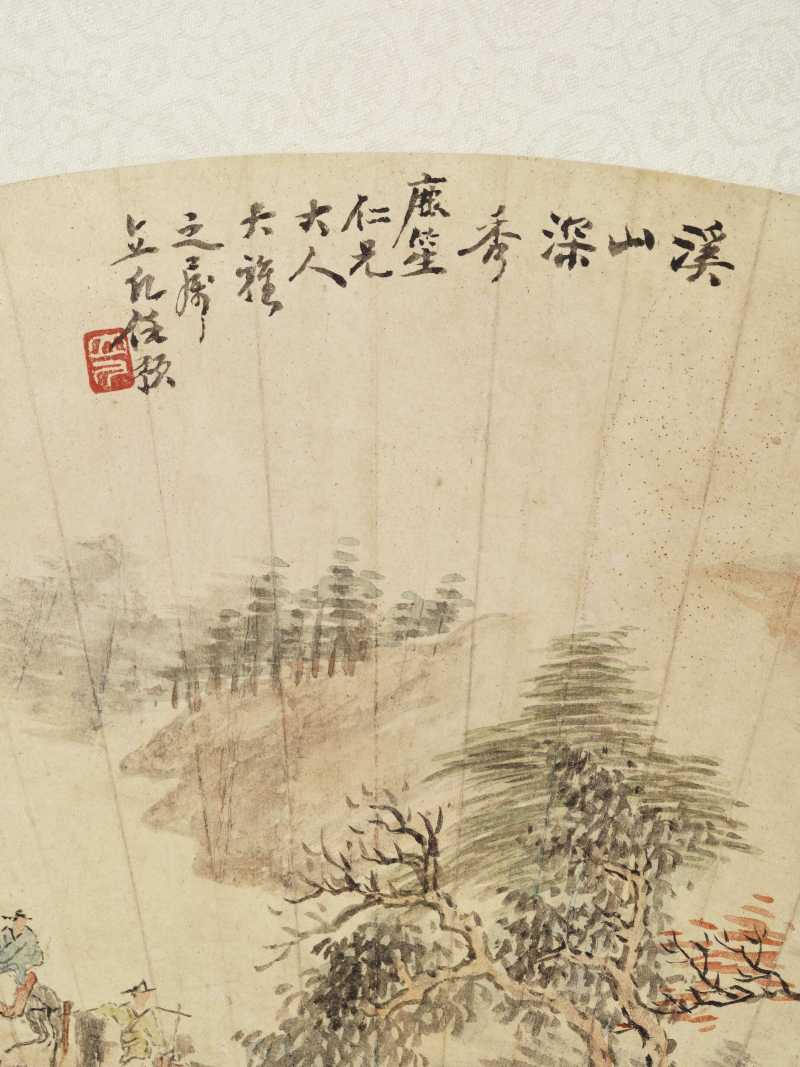 溪山深秀
鹿笙
仁兄
大人
大雅
之屬
立凡任預